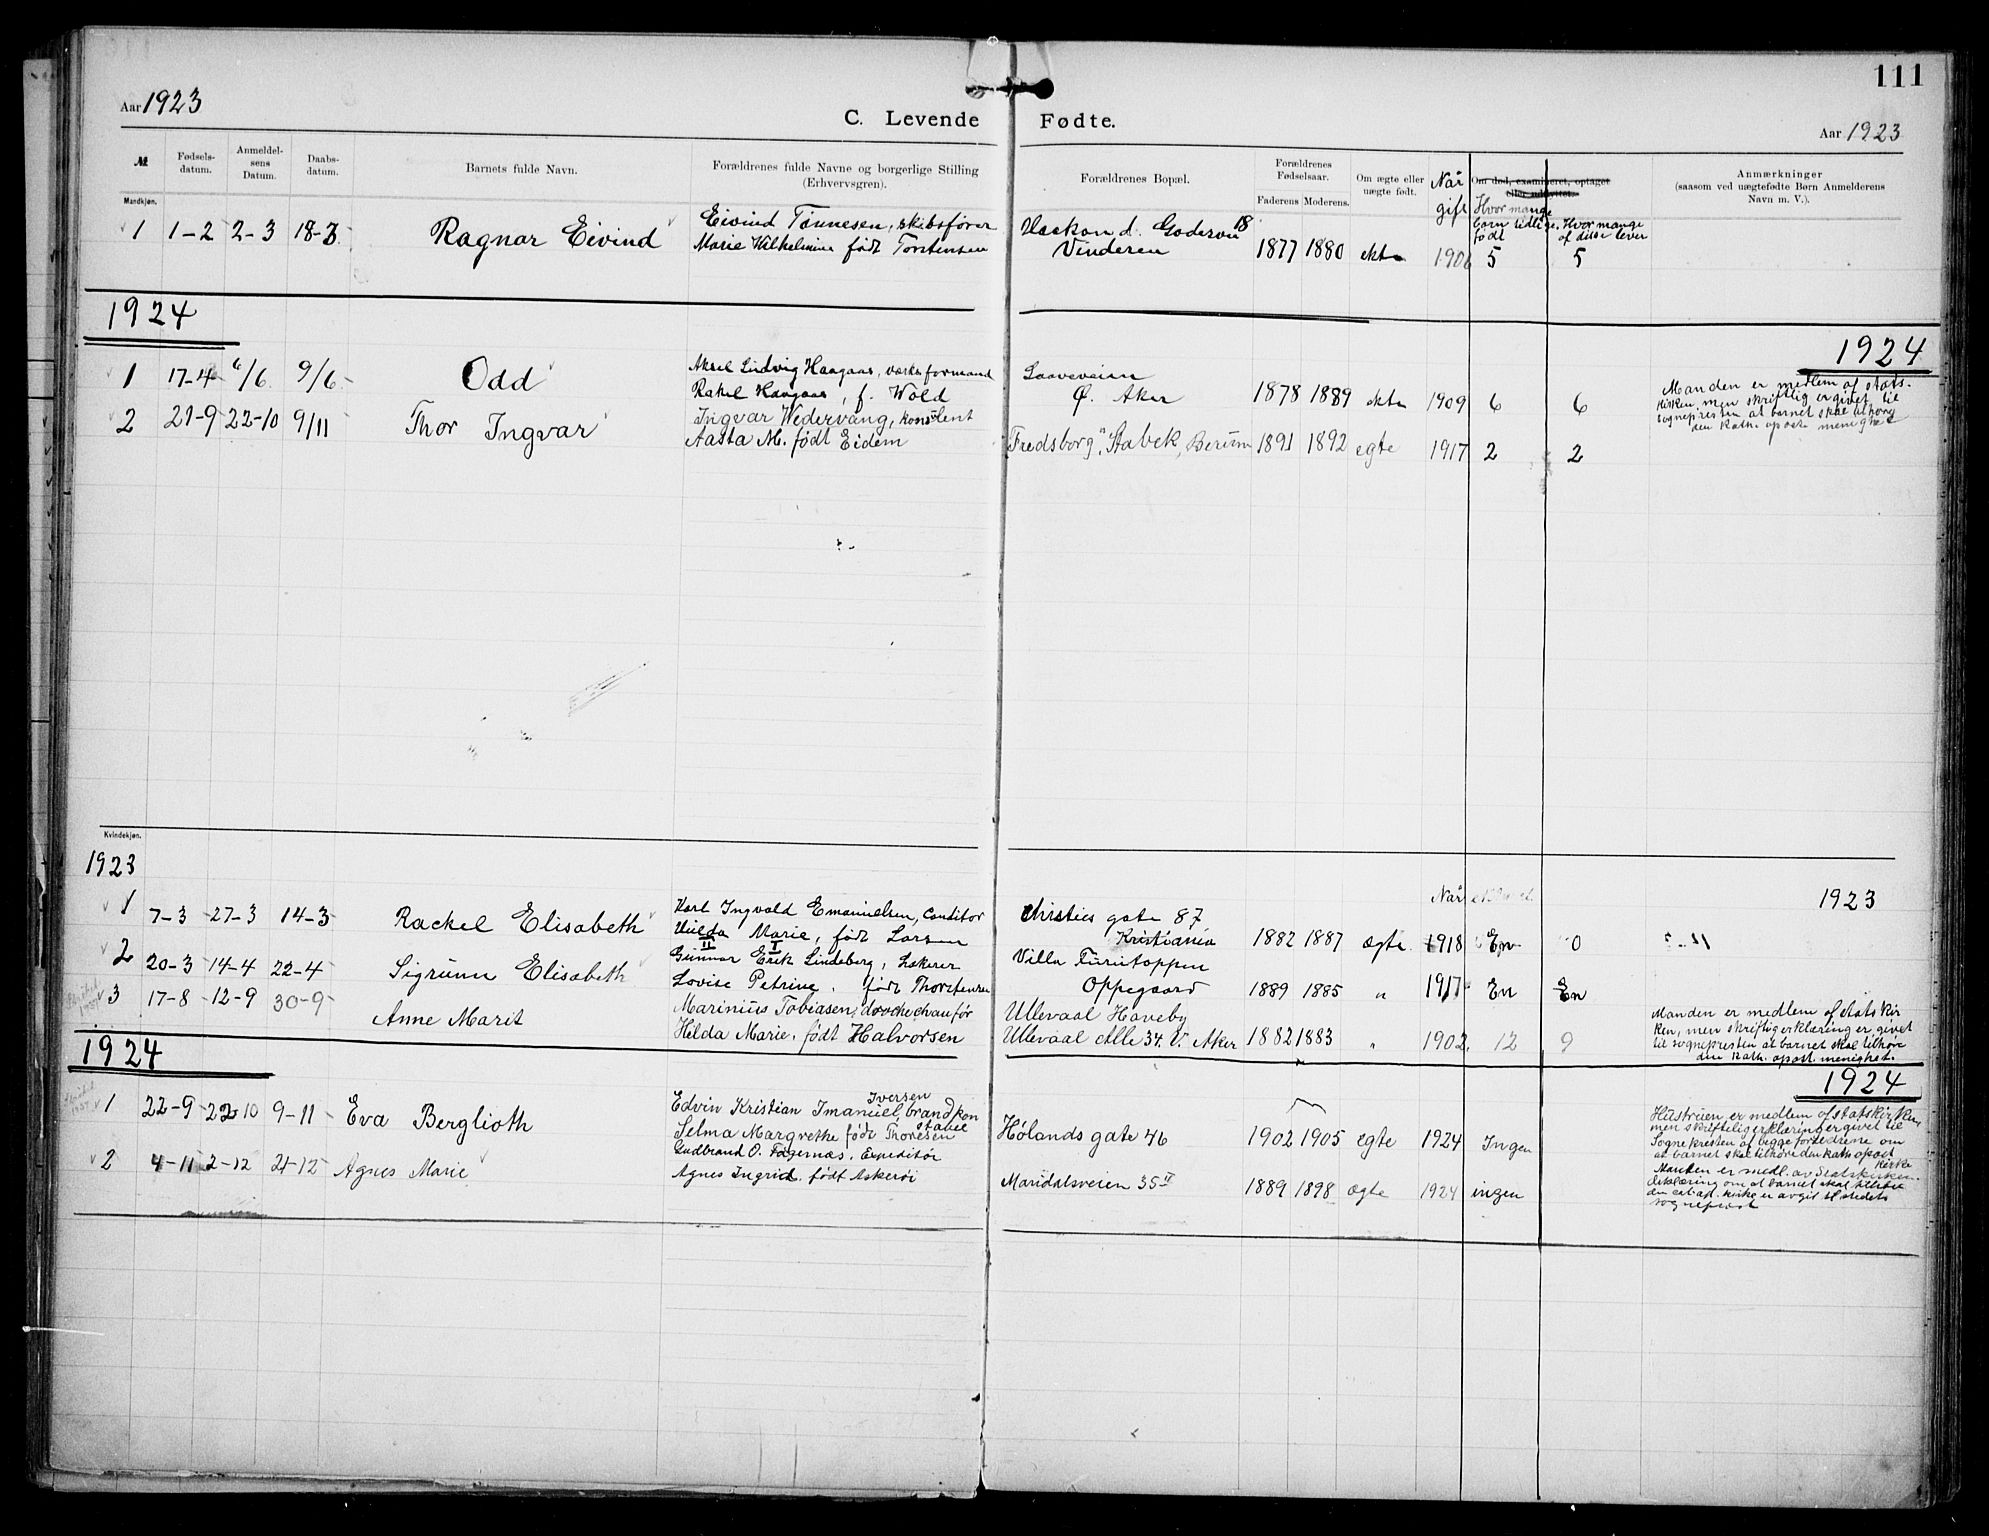 111
Aar 1923
C. Levende Fødte.
Aar 1923
№ Fødsels-datum. Anmeldel-sens Datum. Daabs-datum. Barnets fulde Navn. Forældrenes fulde Navne og borgerlige Stilling (Erhvervsgren). Forældrenes Bopæl. Forældrenes Fødselsaar. Faderens Moderens. Om ægte eller uægte født. Når gift Om død, examineret, optaget eller udtraadt. Hvor mange børn tidligere født Hvor mange af disse lever Anmærkninger (saasom ved uægtefødte Børn Anmelderens Navn m. V.).
Mandkjøn.
1 1-2 2-3 18-3 Ragnar Eivind Eivind Tønnesen, skibsfører Haakon d. Godesvei 18
Marie Wilhelmine født Torstensen Vinderen 1877 1880 ekte 1906 5 5
1924
1924
1 17-4 6/6 9/6 Odd Aksel Ludvig Haagaas, verksformand
Rakel Haagaas, f. Wold Ø. Aker 1878 1889 ekte 1909 6 6
Manden er medlem af stats-
kirken, men skriftlig er givet til
sognepresten at barnet skal tilhøre
den kath. apost. menighet
2 21-9 22-10 9/11 Thor Ingvar Ingvar Wedervang, konsulent
Aasta M. født Eidem "Fredsborg", Stabek, Berum 1891 1892 egte 1917 2 2
Kvindekjøn.
1923
Når 1923
1 7-3 27-3 14-3 Rackel Elisabeth Karl Ingvald Emanuelsen, Conditor Christies gate 87
Hulda Marie, født Larsen Kristiania 1882 1887 ægte 1918 En 0
2 20-3 14-4 22-4 Sigrunn Elisabeth Gunnar Erik Lindeberg, Lakerer Villa Furutoppen
Lovise Petrine, født Thorstensen Oppegaard 1889 1885 " 1917 En En
3 17-8 12-9 30-9 Anne Marit Marinius Tobiasen, droschechauför Ullevaal Haveby
Hilda Marie, født Halvorsen Ullevaal Alle 34. V. Aker 1882 1883 " 1902 12 9
Manden er medlem of Statskir
ken, men skriftlig erklæring er givet
til sognepresten at barnet skal tilhøre
den kath. apost. menighet.
1924
1924
1 22-9 22 10 9-11 Eva Berglioth Edvin Kristian Imanuel Iversen, brandkonstabel
Selma Margrethe født Thoresen Hølands gate 46 1902 1905 egte 1924 Ingen
Hustruen er medlem of statskirken,
men skriftelig erklæring er givet til
Sognepresten af begge foreldrene om
at barnet skal tilhøre den kath apost kirke
2 4-11 2-12 21-12 Agnes Marie Gudbrand O. Fagernæs, Expeditør
Agnes Ingrid født Askerøi Maridalsveien 35 II 1889 1898 ægte 1924 ingen
Manden er medl. av Statskirken.
Erklæring om at barnet skal tilhøre
den cat. ap. kirke er avgit til stedets
sogneprest